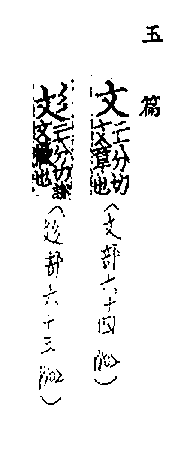 玉篇
文 亡分切
文章也
(文部六十四)
彣 亡分切
文也
(彡部六十三)